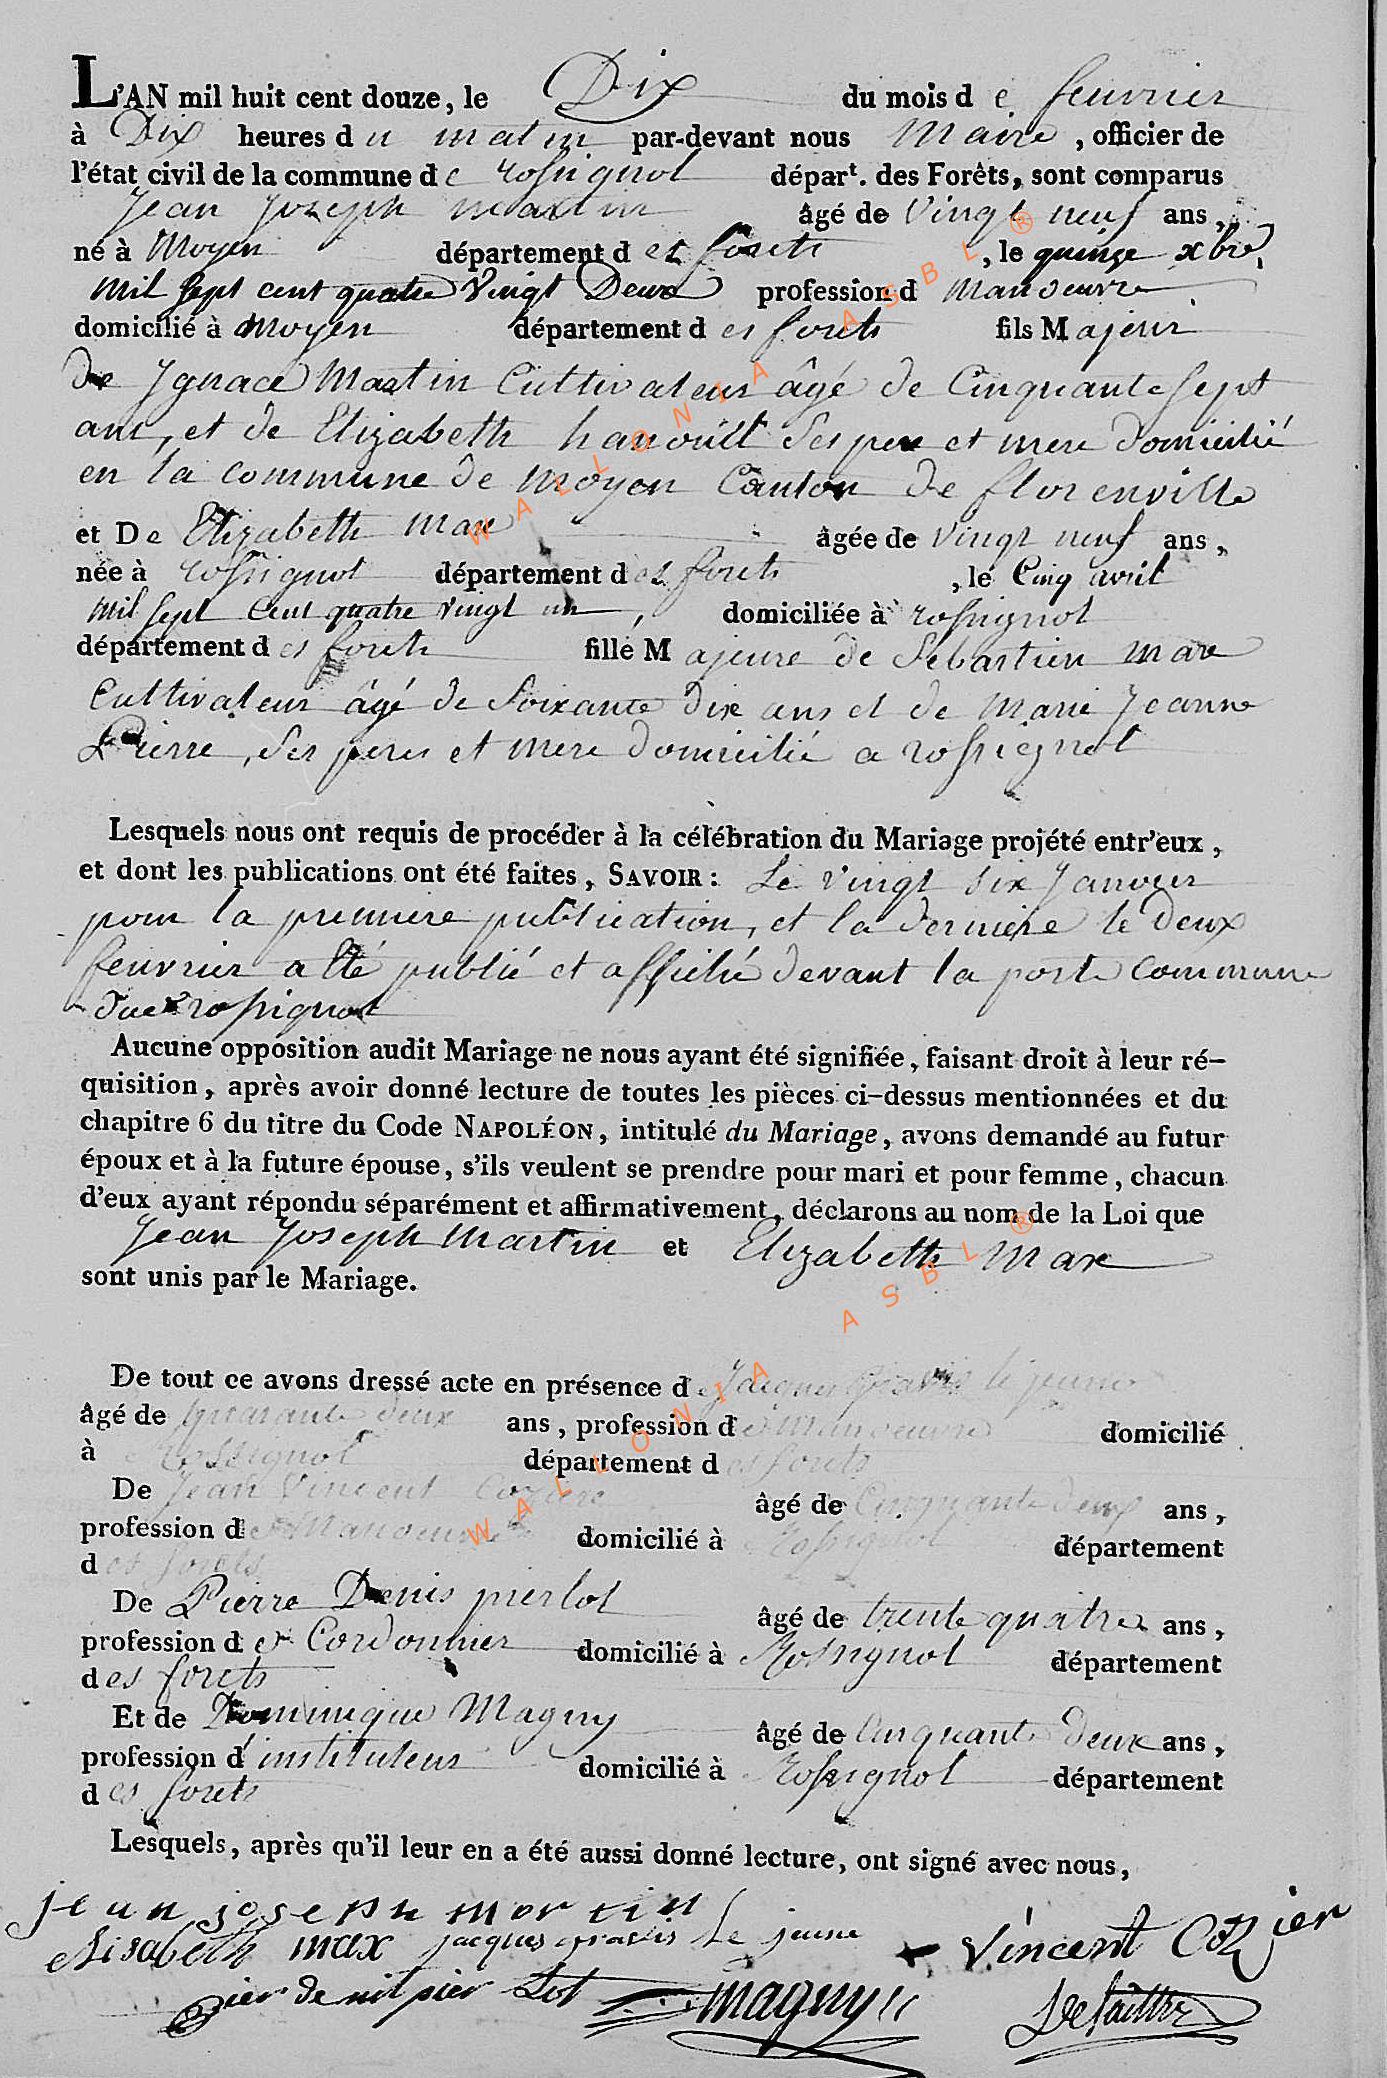 L'AN mil huit cent douze, le Dix du mois de feuvrier
à Dix heures du matin par-devant nous Maire, officier de
l'état civil de la commune de rossignol départ. des Forêts, sont comparus
Jean Joseph martin âgé de vingt neuf ans,
né à Moyen département des forets, le quinze xbre,
mil sept cent quatre vingt Deux profession d manoeuvre
domicilié à moyen département des forets fils Majeur
de Ignace Martin Cultivateur âgé de Cinquante sept
ans, et de Elizabeth hanoült ses pere et mere domicilié
en la commune de moyen Canton de florenville
et De Elizabeth Max âgée de vingt neuf ans,
née à rossignol département des forets, le Cinq avril
mil sept Cent quatre vingt un, domiciliée à rossignol
département des forets fille Majeure de Sebastien max
Cultivateur âgé de Soixante dix ans et de marie Jeanne
Pierre, ses peres et mere domicilié a rossignol
Lesquels nous ont requis de procéder à la célébration du Mariage projété entr'eux,
et dont les publications ont été faites, SAVOIR : Le vingt six Janvier
pour la premiere publication, et la derniere le deux
feuvrier a été publié et affiché devant la porte commune
rossignol
Aucune opposition audit Mariage ne nous ayant été signifiée, faisant droit à leur ré-
quisition, après avoir donné lecture de toutes les pièces ci-dessus mentionnées et du
chapitre 6 du titre du Code NAPOLÉON, intitulé du Mariage, avons demandé au futur
époux et à la future épouse, s'ils veulent se prendre pour mari et pour femme, chacun
d'eux ayant répondu séparément et affirmativement, déclarons au nom de la Loi que
Jean Joseph Martin et Elizabeth Max
sont unis par le Mariage.
De tout ce avons dressé acte en présence de Jacques le jeune
âgé de quarante deux ans, profession de Manoeuvre domicilié
à Rossignol département des forets
De Jean Vincent Cozier âgé de Cinquante deux ans,
profession de Manoeuvre domicilié à Rossignol département
des forets
De Pierre Denis pierlot âgé de trente quatre ans,
profession de Cordonnier domicilié à Rossignol département
des forets
Et de Dominique Magny âgé de Cinquante deux ans,
profession d'instituteur domicilié à Rossignol département
des forets
Lesquels, après qu'il leur en a été aussi donné lecture, ont signé avec nous,
jean joseph martin
elisabeth max jacques le jeune Vincent Cozier
pier denit pier Lot magny
WALLONIA ASBL ®
WALLONIA ASBL ®